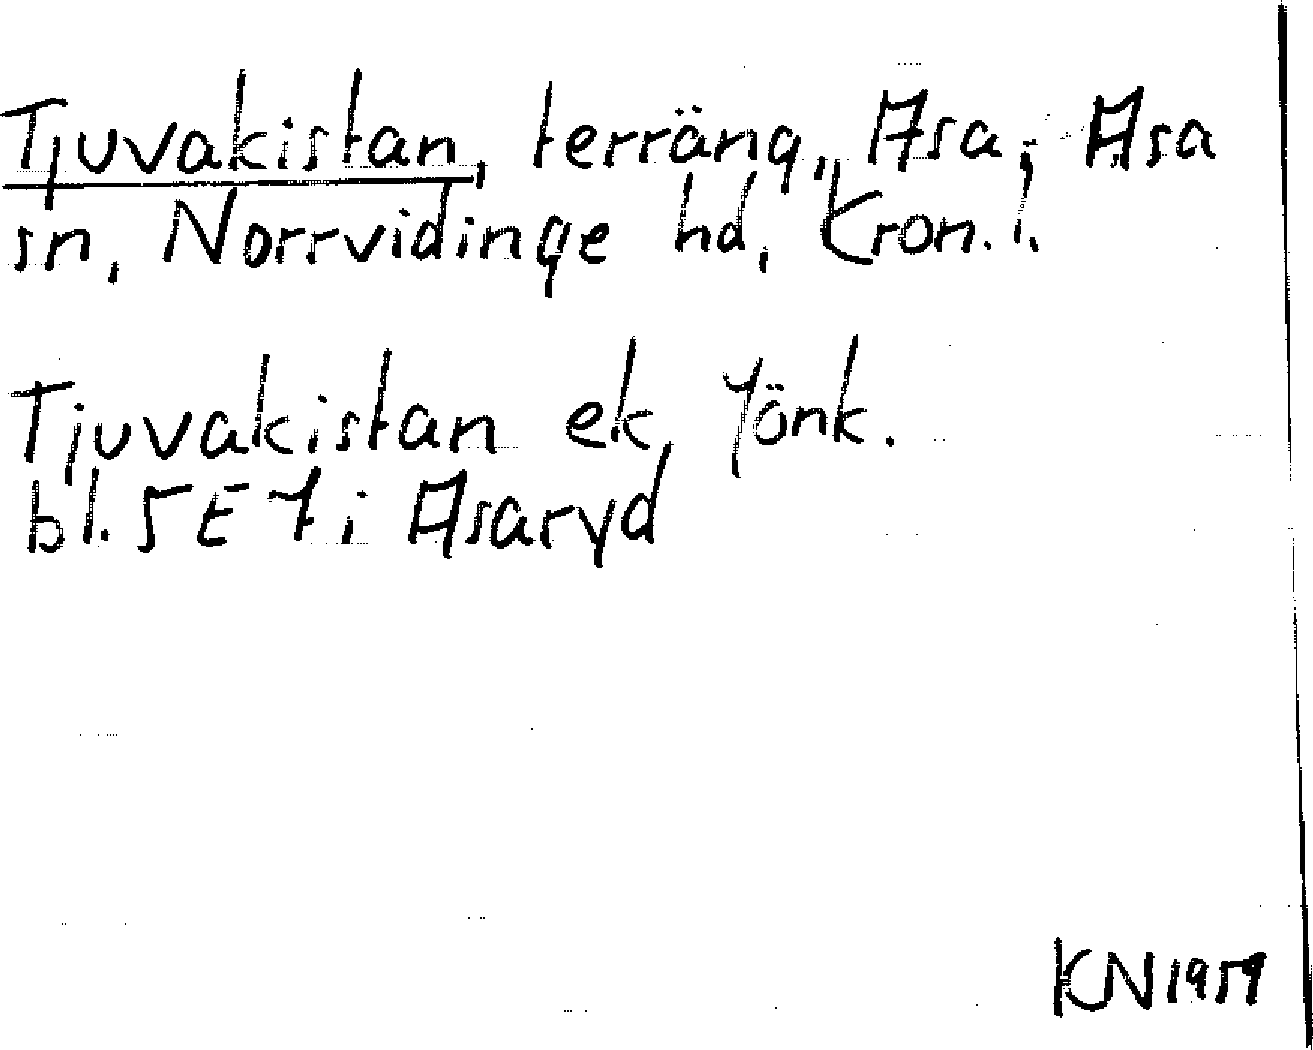 Tjuvakistan, terräng, Asa, Asa
sn, Norrvidinge hd, Kron. l.
Tjuvakistan ek, Jönk.
bl. 5 E 7 i Asaryd
KN 1959